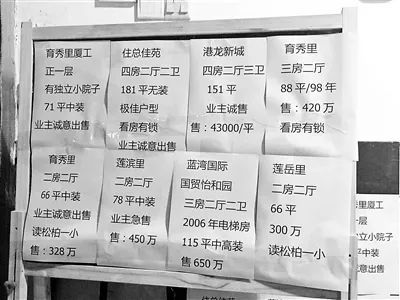 育秀里厦工
正一层
有独立小院子
71平中装
业主诚意出售
住总佳苑
四房二厅二卫
181平无装
极佳户型
看房有锁
业主诚意出售
港龙新城
四房二厅三卫
151平
业主诚售
售：43000/平
育秀里
三房二厅
88平/98年
售：420万
看房有锁
育秀里
二房二厅
66平中装
业主诚意出售
读松柏一小
售：328万
莲滨里
二房二厅
78平中装
业主急售
售：450万
蓝湾国际
国贸怡和园
三房二厅二卫
2006年电梯房
115平中高装
售650万
莲岳里
二房二厅
66平
300万
读松柏一小
育秀里厦工
一层
独立小院子
平中装
诚意出售